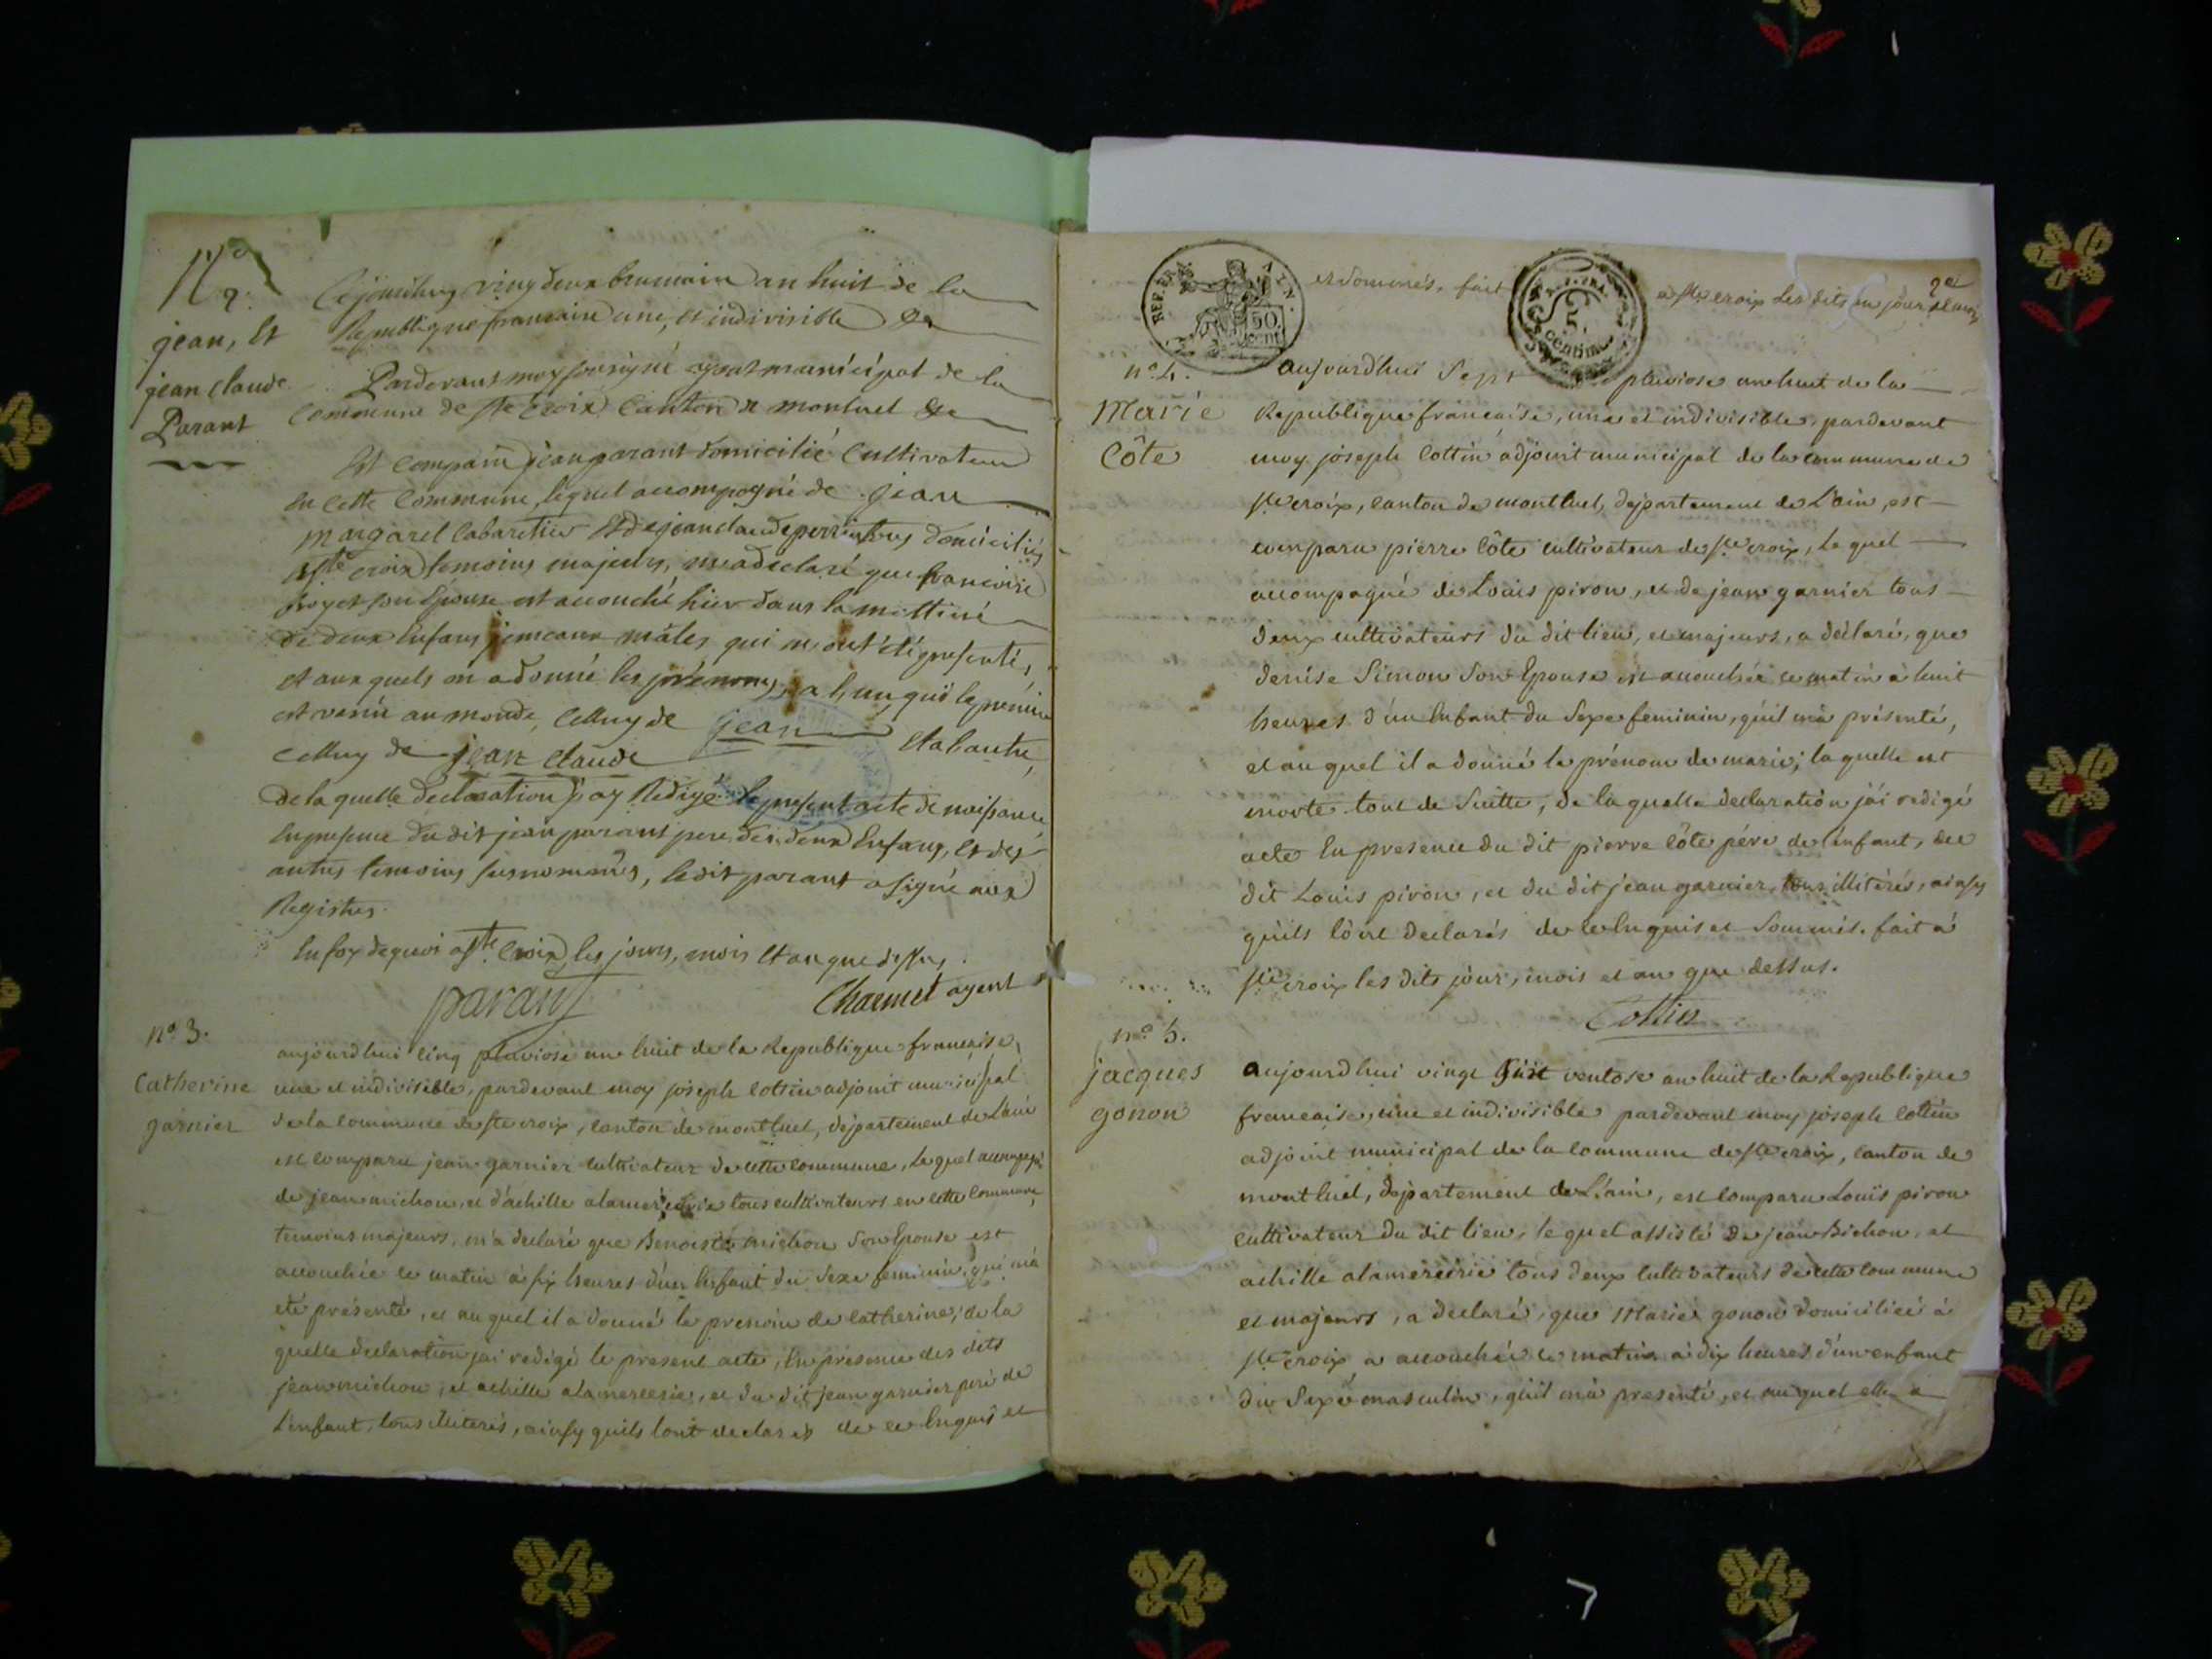 N°
2.
jean, Et
jean claude
Parant
Cejourdhuy vingt deux brumaire an huit de la
Republique francaise une, et indivisible
Pardevant moy soussigné agent municipal de la
Commune de Ste Croix Canton de montluel
Est comparu jean parant domicilié Cultivateur
En cette Commune, lequel accompagné de jean
margaret Cabaretier Et de jean claude perrin tous domiciliés
a Ste croix temoins majeurs, m'a declaré que francoise
son Epouse est accouché hier dans la mattiné
de deux Enfans jumeaux mâles qui m'ont été presentés,
et aux quels on a donné les prénoms, a l'un qui le premier
est venû au monde, Celluy de jean Et a l'autre,
Celluy de jean claude
de la quelle declaration j'ay Redigé le present acte de naissance
En presence du dit jean parant pere des deux Enfans, Et des
autres temoins susnommés, le dit parant a signé aux
Registres.
En foy de quoi a Ste Croix, les jours, mois Et an que dessus.
parant Charmet agent
n° 3.
Catherine
garnier
aujourdhui cinq pluviose an huit de la Republique francaise,
une et indivisible, pardevant moy joseph cottin adjoint municipal
de la commune de ste croix, canton de montluel, departement de L'ain
est comparu jean garnier cultivateur de cette commune, lequel accompagné
de jean michon, et d'achille alamercerie tous cultivateurs en cette commune,
temoins majeurs, m'a declaré que Benoiste michon son Epouse est
accouchée ce matin à six heures d'un Enfant du sexe feminin, qui m'a
eté présenté, et au quel il a donné le prenom de catherine; de la
quelle declaration j'ai redigé le present acte, En presence des dits
jean michon, et achille alamercerie, et du dit jean garnier peré de
L'enfant, tous illiterés, ainsy quils l'ont declarés de ce Enquis et
2e
REP. FRA. AIN.
50 cent
25 centimes
et sommés. fait à Ste croix les dits jour et mois
n° 4.
Marie
Côte
aujourdhui Sept pluviose an huit de la
Republique francaise, une et indivisible, pardevant
moy joseph Cottin adjoint municipal de la commune de
ste croix, canton de montluel, departement de L'ain, est
comparu pierre Côte cultivateur de ste croix, le quel
accompagné de Louis piron, et de jean garnier tous
deux cultivateurs du dit lieu, et majeurs, a déclaré, que
denise Simon Son Epouse est accouchée ce matin à huit
heures d'un Enfant du Sexe feminin, qu'il m'a présenté,
et au quel il a donné le prénom de marie; la quelle est
morte tout de Suitte, de la quelle declaration j'ai redigé
acte En presence du dit pierre Côte pére de l'enfant, du
dit Louis piron, et du dit jean garnier, tous illitérés, ainsy
qu'ils l'ont declarés de ce Enquis et Sommés. fait à
ste croix les dits jour, mois et an que dessus.
Cottin
n° 5.
jacques
gonon
aujourdhui vingt huit ventose an huit de la Republique
francaise, une et indivisible pardevant moy joseph Cottin
adjoint municipal de la commune de ste croix, canton de
montluel, departement de L'ain, est comparu Louis piron
cultivateur du dit lieu, le quel assisté de jean Bichon, et
achille alamercerie tous deux cultivateurs de cette commune
et majeurs, a declaré, que Marie gonon domiciliée à
ste croix a accouchée ce matin à dix heures d'un enfant
du Sexe masculin, qu'il m'a presenté, et au quel elle a